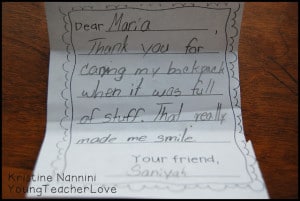 Dear Maria,
Thank you for
caring my backpack
when it was full
of stuff. That really
made me smile.
Your friend,
Saniyah
Kristine Nannini
YoungTeacherLove